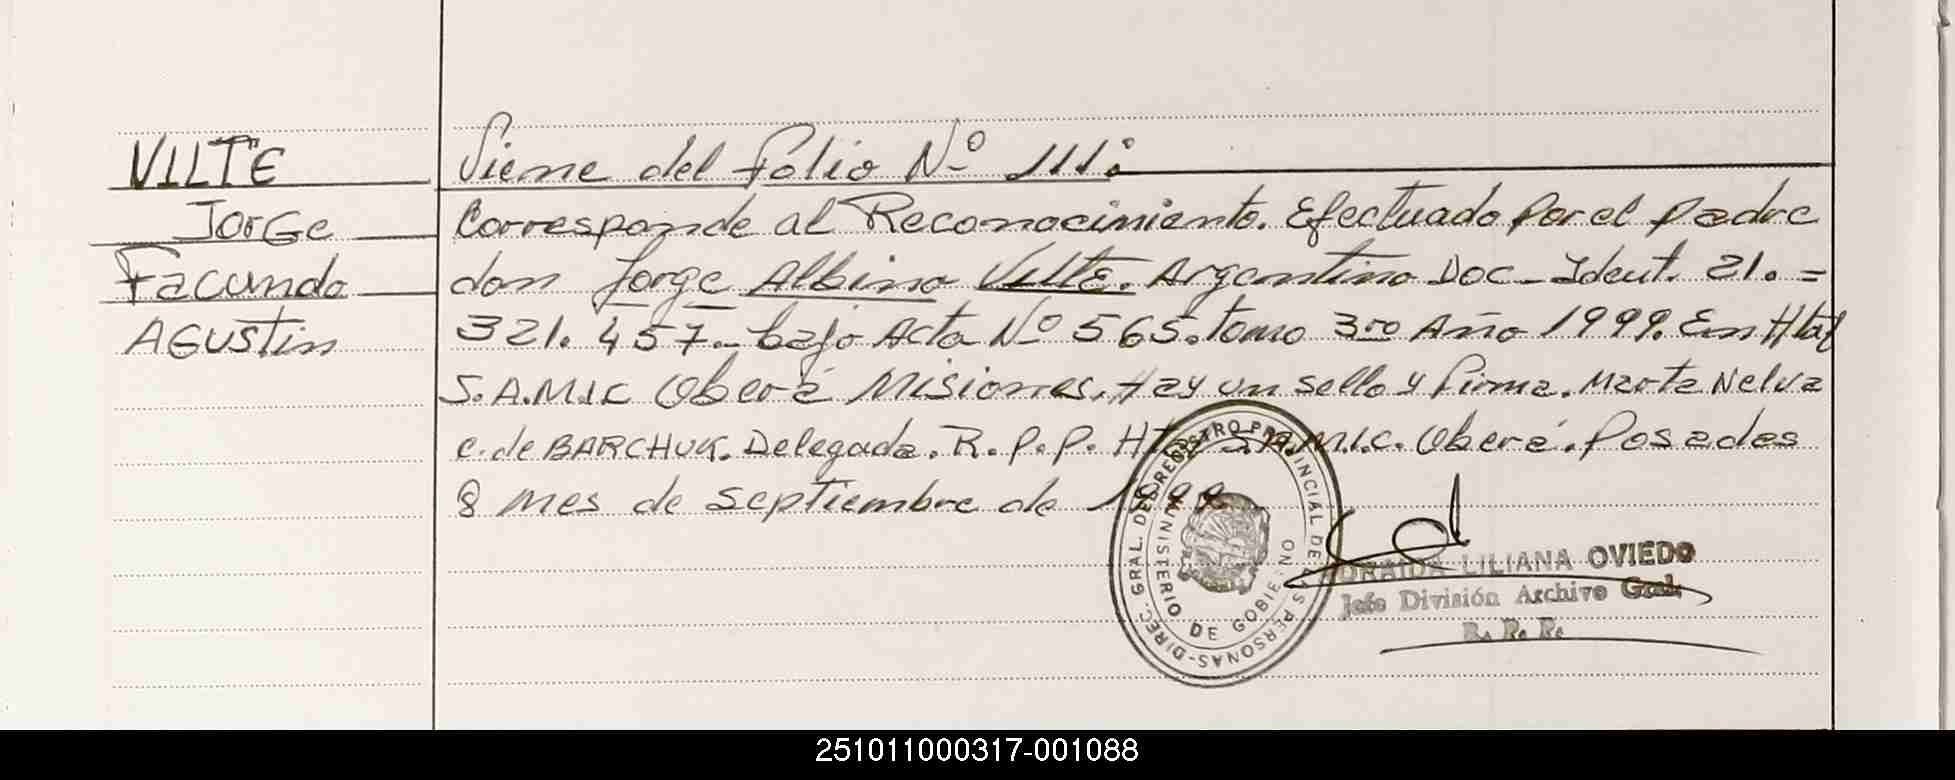 VILTE
Jorge
Facundo
Agustin
Viene del folio Nº 111:
Corresponde al Reconocimiento. Efectuado por el padre
don Jorge Albino Vilte. Argentino Doc-Ident. 21.=
321.457.- bajo Acta Nº 565. tomo 3ro Año 1999. En Htal
S.A.M.I.C Oberá Misiones. Hay un sello y firma. Marta Nelva
c. de BARCHUK. Delegada. R.P.P. Htal S.A.M.I.C. Oberá. Posadas
8 mes de septiembre de 1999
DIREC. GRAL. DEL REGISTRO PROVINCIAL DE LAS PERSONAS-
MINISTERIO DE GOBIERNO
LILIANA OVIEDO
Jefe División Archivo Gral.
R. P. P.
251011000317-001088